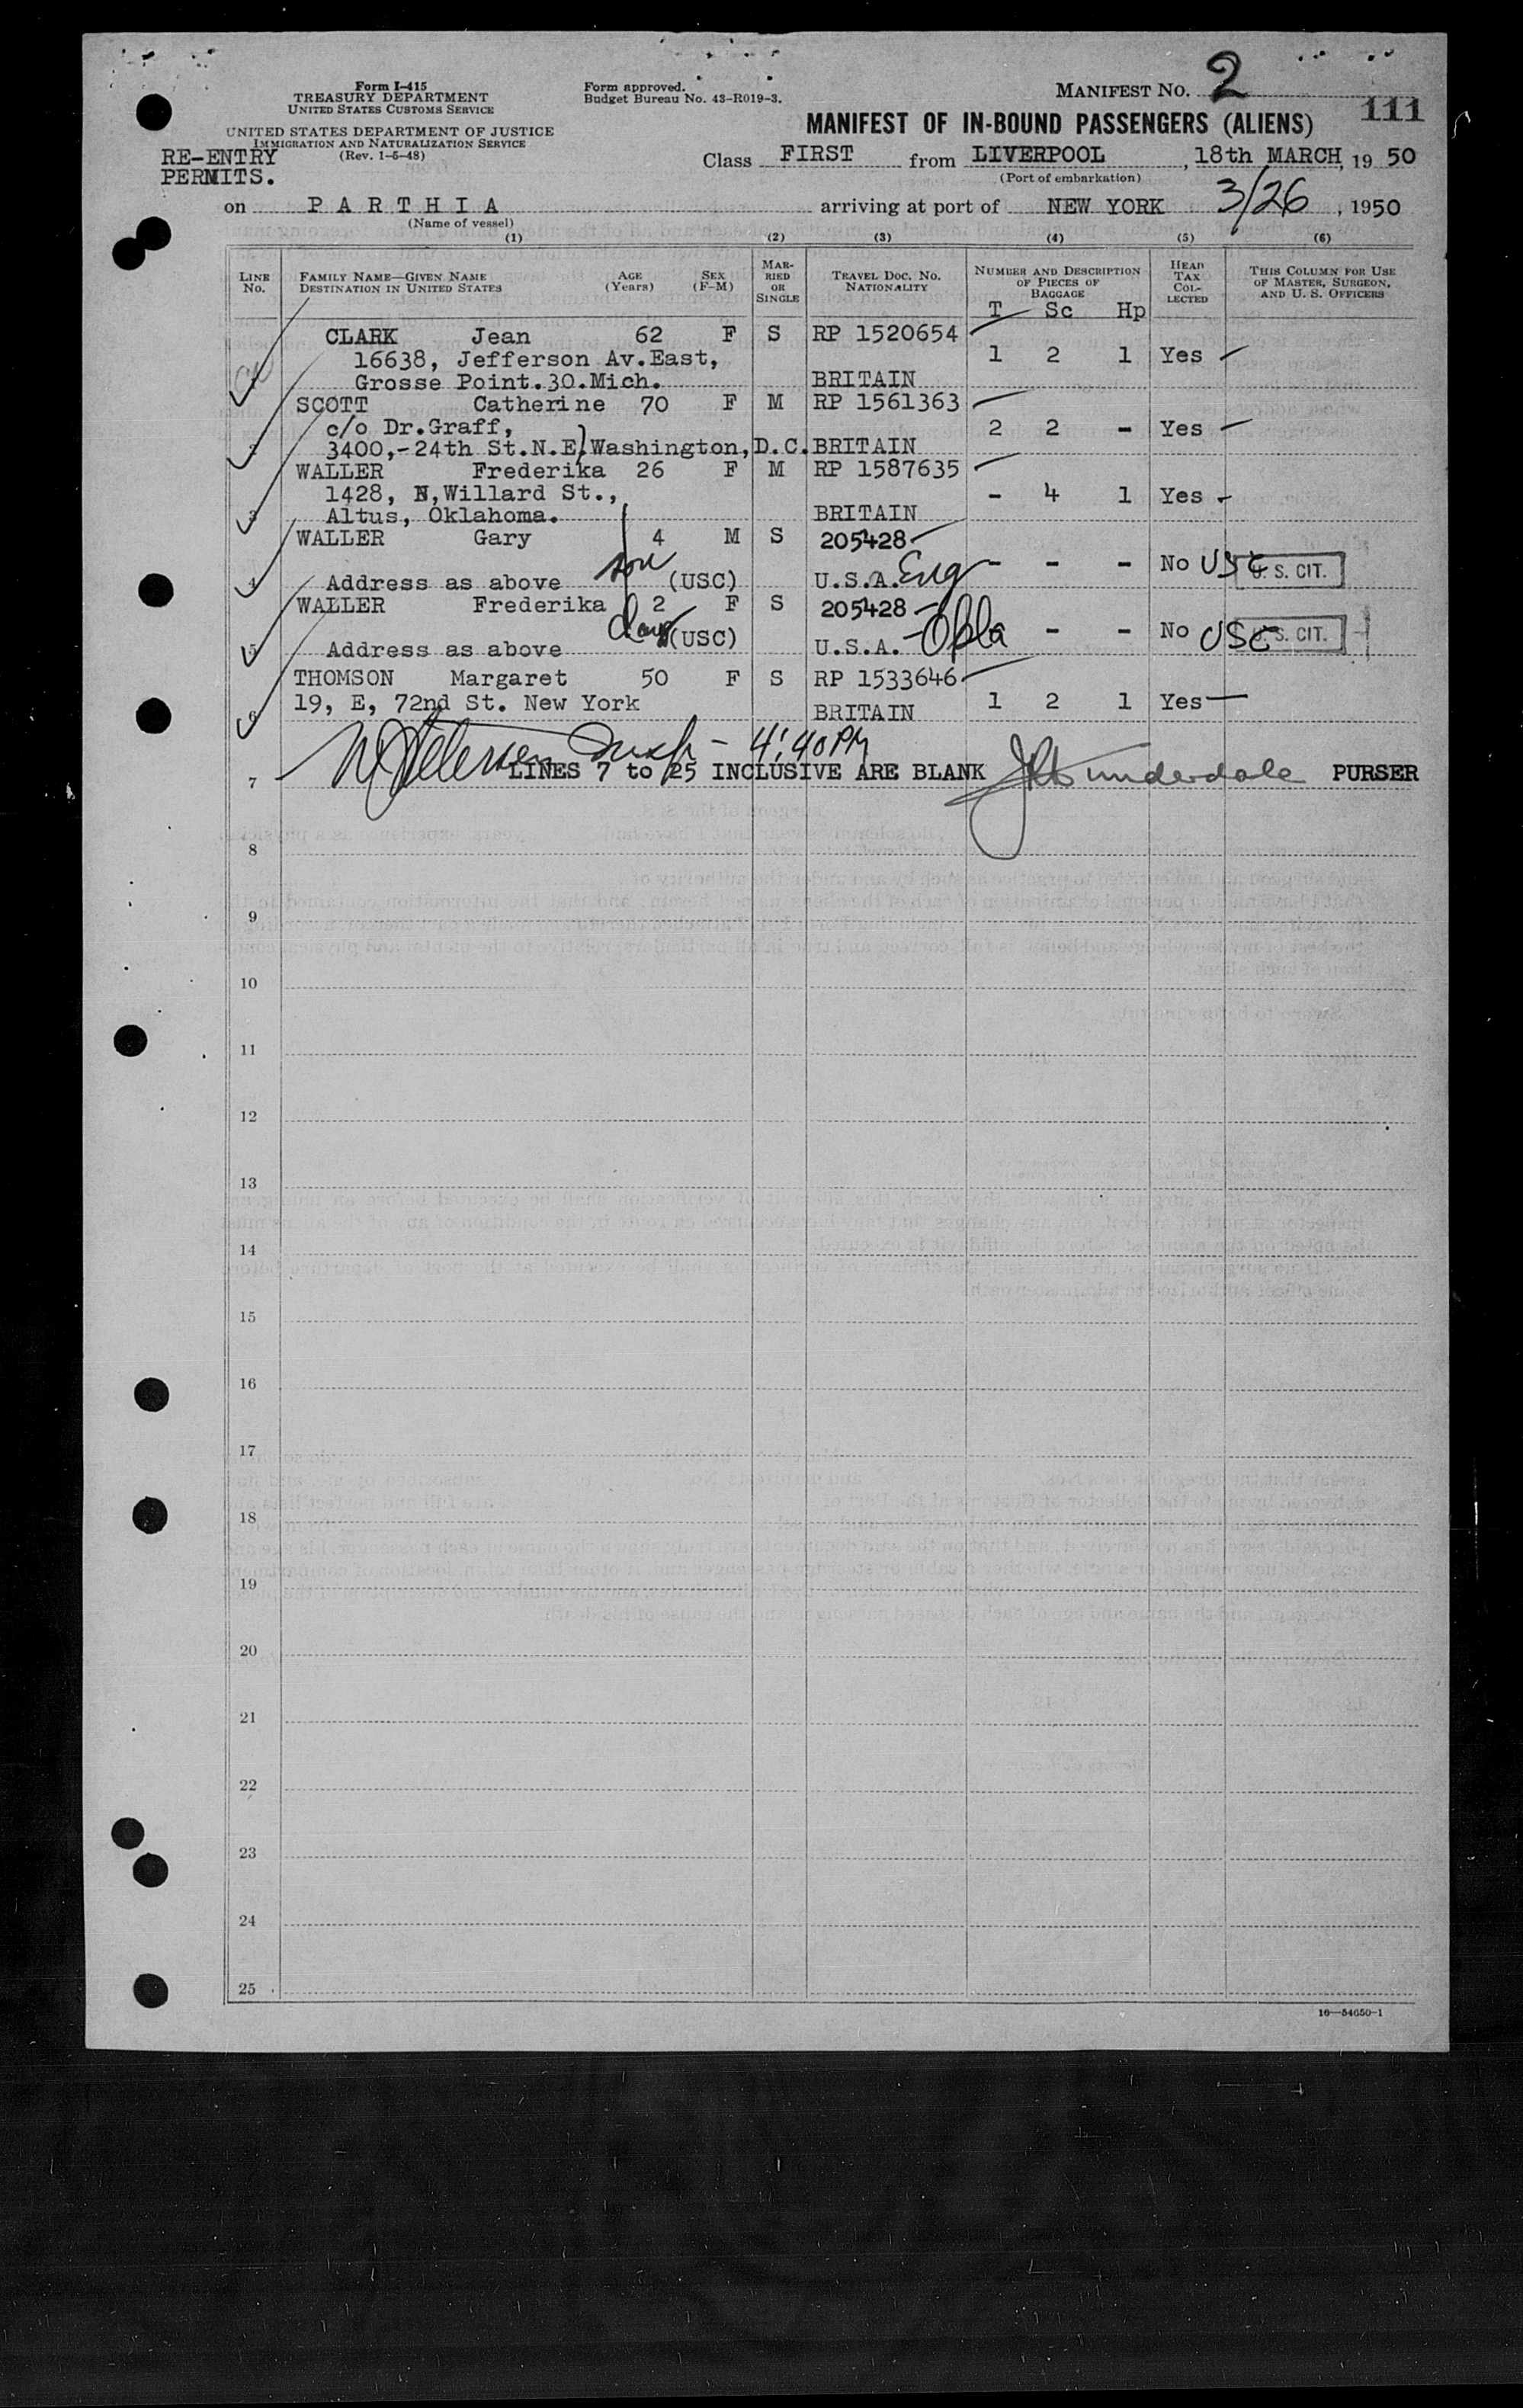 Form I-415
TREASURY DEPARTMENT
UNITED STATES CUSTOMS SERVICE
UNITED STATES DEPARTMENT OF JUSTICE
IMMIGRATION AND NATURALIZATION SERVICE
(Rev. 1-5-48)
RE-ENTRY
PERMITS.
Form approved.
Budget Bureau No. 43-R019-3.
MANIFEST NO. 2
111
MANIFEST OF IN-BOUND PASSENGERS (ALIENS)
Class FIRST from LIVERPOOL, 18th MARCH, 19 50
(Port of embarkation)
on PARTHIA arriving at port of NEW YORK 3/26, 1950
(Name of vessel)
(1) (2) (3) (4) (5) (6)
LINE No. FAMILY NAME—GIVEN NAME DESTINATION IN UNITED STATES AGE (Years) SEX (F-M) MARRIED OR SINGLE TRAVEL DOC. NO. NATIONALITY NUMBER AND DESCRIPTION OF PIECES OF BAGGAGE HEAD TAX COLLECTED THIS COLUMN FOR USE OF MASTER, SURGEON, AND U. S. OFFICERS
T Sc Hp
CLARK Jean 62 F S RP 1520654
16638, Jefferson Av.East, 1 2 1 Yes
1 Grosse Point.30.Mich. BRITAIN
SCOTT Catherine 70 F M RP 1561363
c/o Dr.Graff, 2 2 - Yes
2 3400,-24th St.N.E.Washington,D.C. BRITAIN
WALLER Frederika 26 F M RP 1587635
1428, N,Willard St., - 4 1 Yes
3 Altus, Oklahoma. BRITAIN
WALLER Gary 4 M S 205428
son Eng - - - No USC U. S. CIT.
4 Address as above (USC) U.S.A.
WALLER Frederika 2 F S 205428
Okla - - No USC U. S. CIT.
5 Address as above (USC) U.S.A.
THOMSON Margaret 50 F S RP 1533646
19, E, 72nd St. New York 1 2 1 Yes
6 BRITAIN
4:40 PM
7 LINES 7 to 25 INCLUSIVE ARE BLANK PURSER
8
9
10
11
12
13
14
15
16
17
18
19
20
21
22
23
24
25
16—54650-1